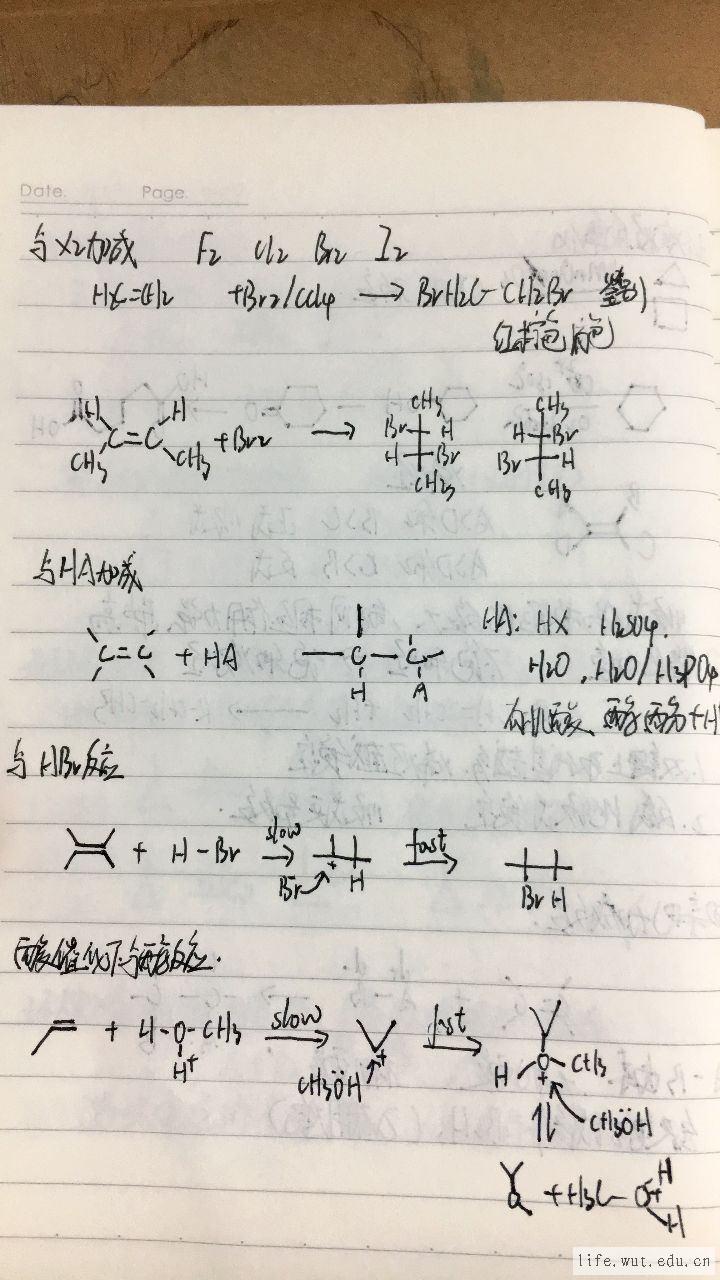 Date. Page.
与X2加成 F2 Cl2 Br2 I2
H2C=CH2 +Br2/CCl4 → BrH2C-CH2Br 鉴别
红棕色 褪色
H H
C=C
CH3 CH3 +Br2 →
CH3 CH3
Br H H Br
H Br Br H
CH3 CH3
与HA加成
C=C + HA C-C HA: HX H2SO4.
H A H2O , H2O/H3PO4
有机酸、醇酚+H
与HBr反应
+ H-Br slow → + H fast → Br H
Br
酸催化下与醇反应.
+ H-O-CH3 slow → + fast → H O CH3
H+ CH3ÖH +
⇌ CH3ÖH
O + H3C-O+ H
H
life.wut.edu.cn